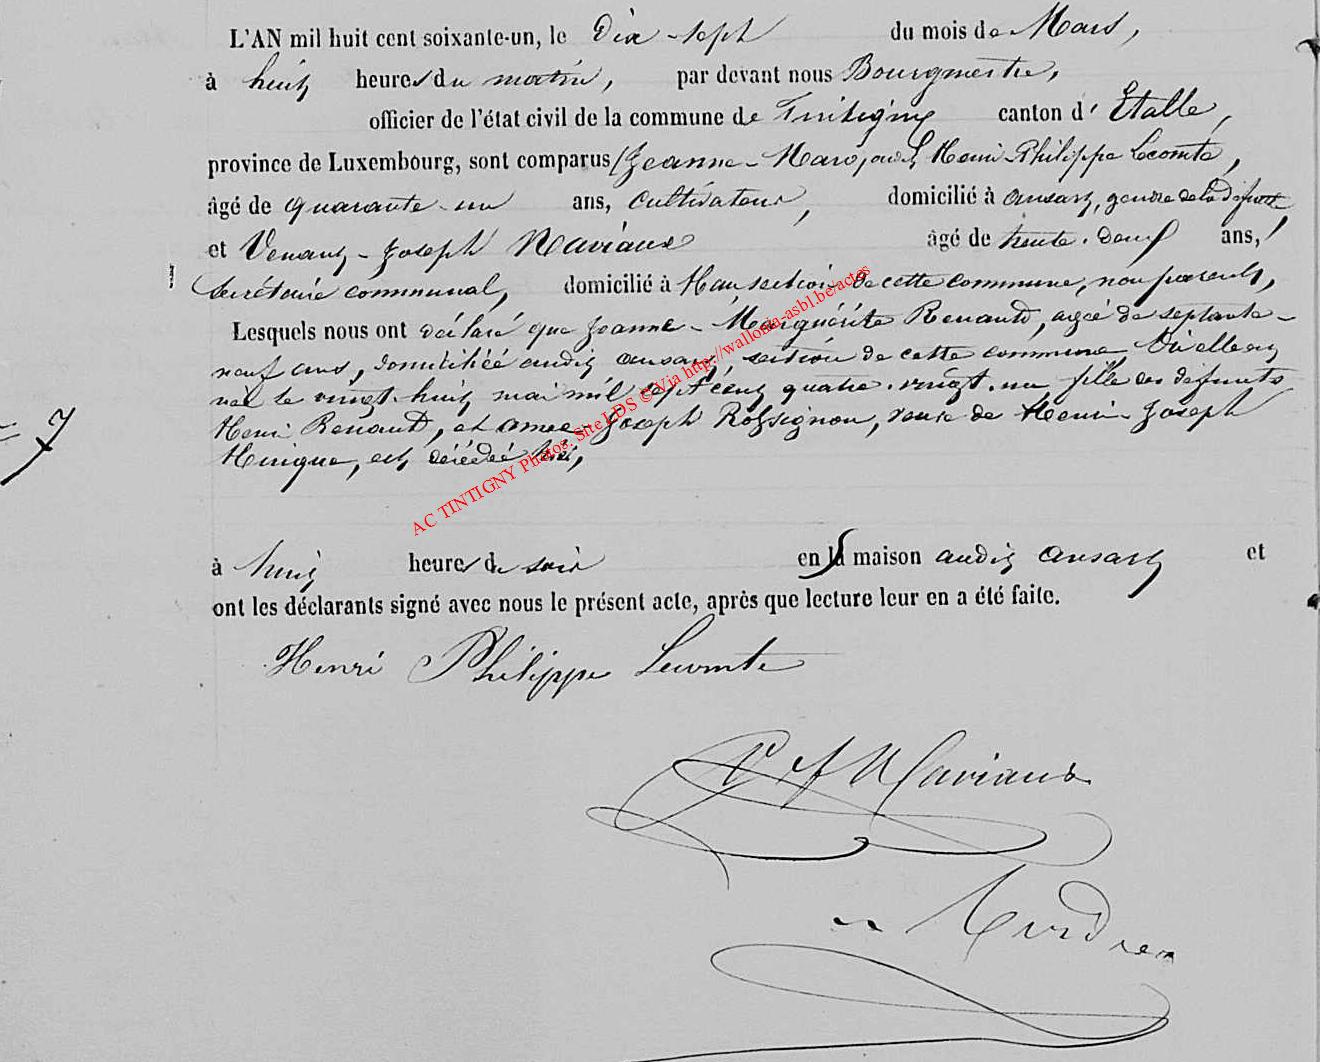 L'AN mil huit cent soixante-un, le Dix-sept du mois de Mars,
à huit heures du matin, par devant nous Bourgmestre,
officier de l'état civil de la commune de Tintigny canton d' Etalle,
province de Luxembourg, sont comparus Henri-Philippe Lecomte,
âgé de quarante-un ans, cultivateur, domicilié à ansart, gendre de la défunte
et Venant-Joseph Naviaux âgé de trente-deux ans,
secrétaire communal, domicilié à Han section de cette commune, non parents,
Lesquels nous ont déclaré que Jeanne-Marguérite Renauld, agée de septante-
neuf ans, domiciliée audit ansart, section de cette commune, où elle est
née le vingt-huit mai mil sept cent quatre-vingt-un fille des défunts
Henri Renauld, et Joseph Rossignon, veuve de Henri-Joseph
est décédée hier,
7
à huit heures du soir en la maison audit ansart et
ont les déclarants signé avec nous le présent acte, après que lecture leur en a été faite.
Henri Philippe Lecomte
V J Naviaux
AC TINTIGNY Photos. Site LDS © Via http://wallonia-asbl.be/actes